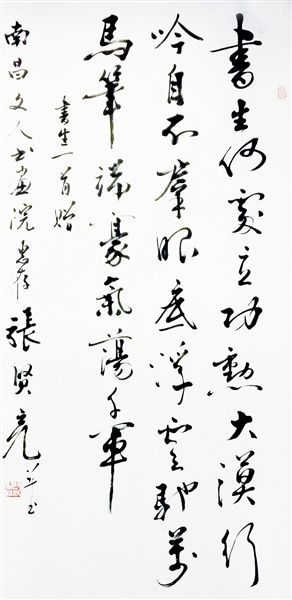 書生何處立功勲大漠行
吟自不羣眼底浮雲馳萬
馬筆端豪氣蕩千軍
書生一首贈
南昌文人书畫院惠存張賢亮并书